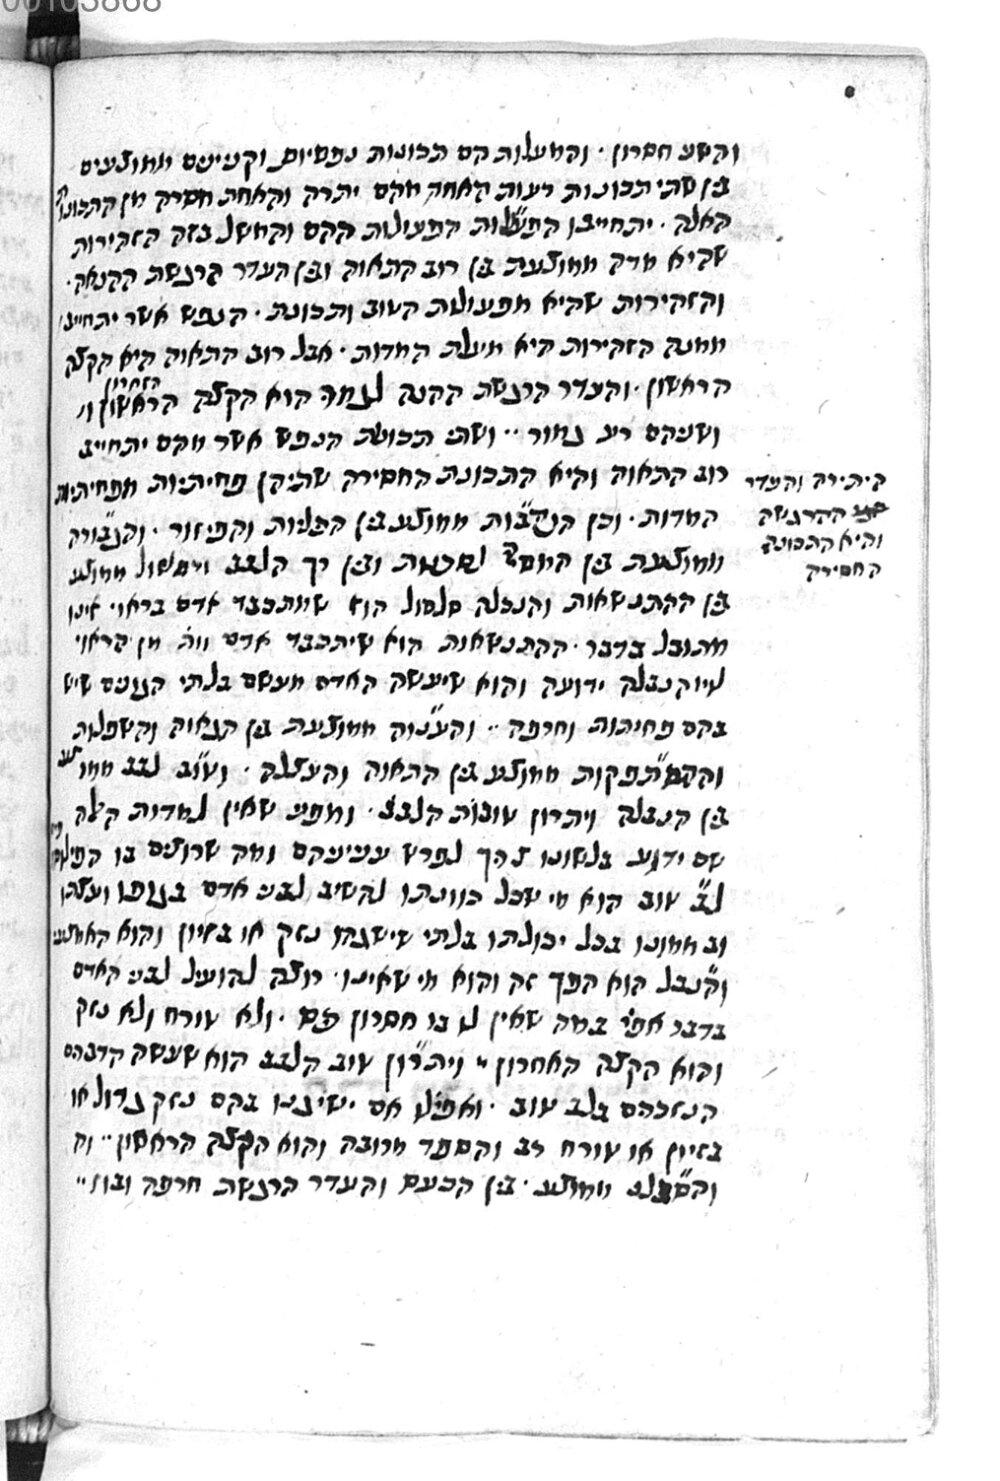 00103868
והשני חסרון. והמעלות הם תכונות נפשיות וקניינים ממוצעים
בין שתי תכונות רעות האחת מהם יתרה והאחת חסרה מן התכונו'
האלה. יתחייבו הפעולות הפעולות ההם והמשל בזה הזהירות
שהיא מדה ממוצעת בין רוב התאוה ובין העדר הרגשת ההנאה.
והזהירות שהיא מפעולות הטוב ותכונת. הנפש אשר יתחייב
ממנה הזהירות היא מעלת המדות. אבל רוב התאוה היא הקצה
הראשון. והעדר הרגשת ההנה לגמרי הוא הקצה הראשון
האחרון
ושניהם רע גמור. ושתי תכונות הנפש אשר מהם יתחייב
רוב התאוה והיא התכונת החסירה שתיהן פחיתיות מפחיתיות
היתירה והעדר
ההרגשה
והיא התכונה
החסירה
המדות. וכן הנדיבות ממוצע בין הכילות והפיזור. והגבורה
ממוצעת בין המסירה לסכנות ובין רך הלבב וסלסול ממוצע
בין ההתנשאות והנבלה סלסול הוא שיתכבד אדם בראוי אינו
מתנבל בדבר. ההתנשאות הוא שיתכבד אדם יותר מן הראוי
לו והנבלה ידועה והוא שיעשה האדם מעשים בלתי הגונים שיש
בהם פחיתות וחרפה. והענוה ממוצעת בין הגאוה והשפלות
וההסתפקות ממוצע בין התאוה והעצלה. וטוב לבב ממוצע
בין הנבלה ויתרון טובות הלבב. ומפני שאין למדות האלה
שם ידוע בלשוננו צריך לפרש ענייניהם ומה שרוצים בו הפילוסופים
לב טוב הוא מי שכל כוונתו להטיב לבני אדם בגופו ועצתו
ובממונו בכל יכולתו בלתי שישיגהו נזק או בזיון והוא האמצעי
והנבל הוא הפך זה והוא מי שאינו רוצה להועיל לבני האדם
בדבר אפי' במה שאין לו בו חסרון ולא טורח ולא נזק
והוא הקצה האחרון ויתרון טוב הלבב הוא שעושה הדברים
הנזכרים בלב טוב. ואפילו אם ישיגנו בהם נזק גדול או
בזיון או טורח רב והפסד מרובה והוא הקצה הראשון. וה
והסבלנות ממוצע. בין הכעס והעדר הרגשת חרפה ובוז